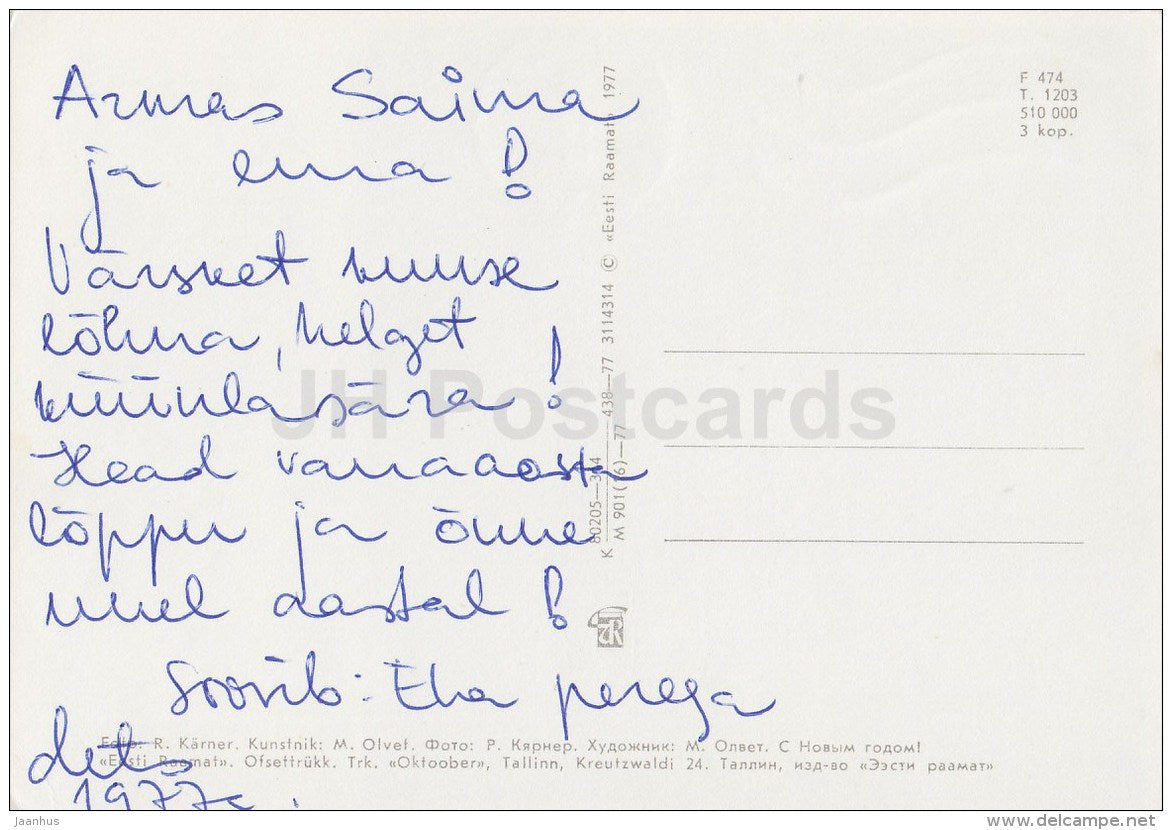 Armas Saima
ja ema!
Värsket kuuse
lõhna, helget
küünlasära!
Head vanaaasta
lõppu ja õnne
uuel aastal!
Soovib: Eha perega
dets
1977a.
F 474
T. 1203
510 000
3 kop.
© «Eesti Raamat» 1977
438—77 3114314
M 901(16)—77
JH Postcards
Foto: R. Kärner. Kunstnik: M. Olvet. Фото: Р. Кярнер. Художник: М. Олвет. С Новым годом!
«Eesti Raamat». Ofsettrükk. Trk. «Oktoober», Tallinn, Kreutzwaldi 24. Таллин, изд-во «Ээсти раамат»
Jaanhus
www.delcampe.net